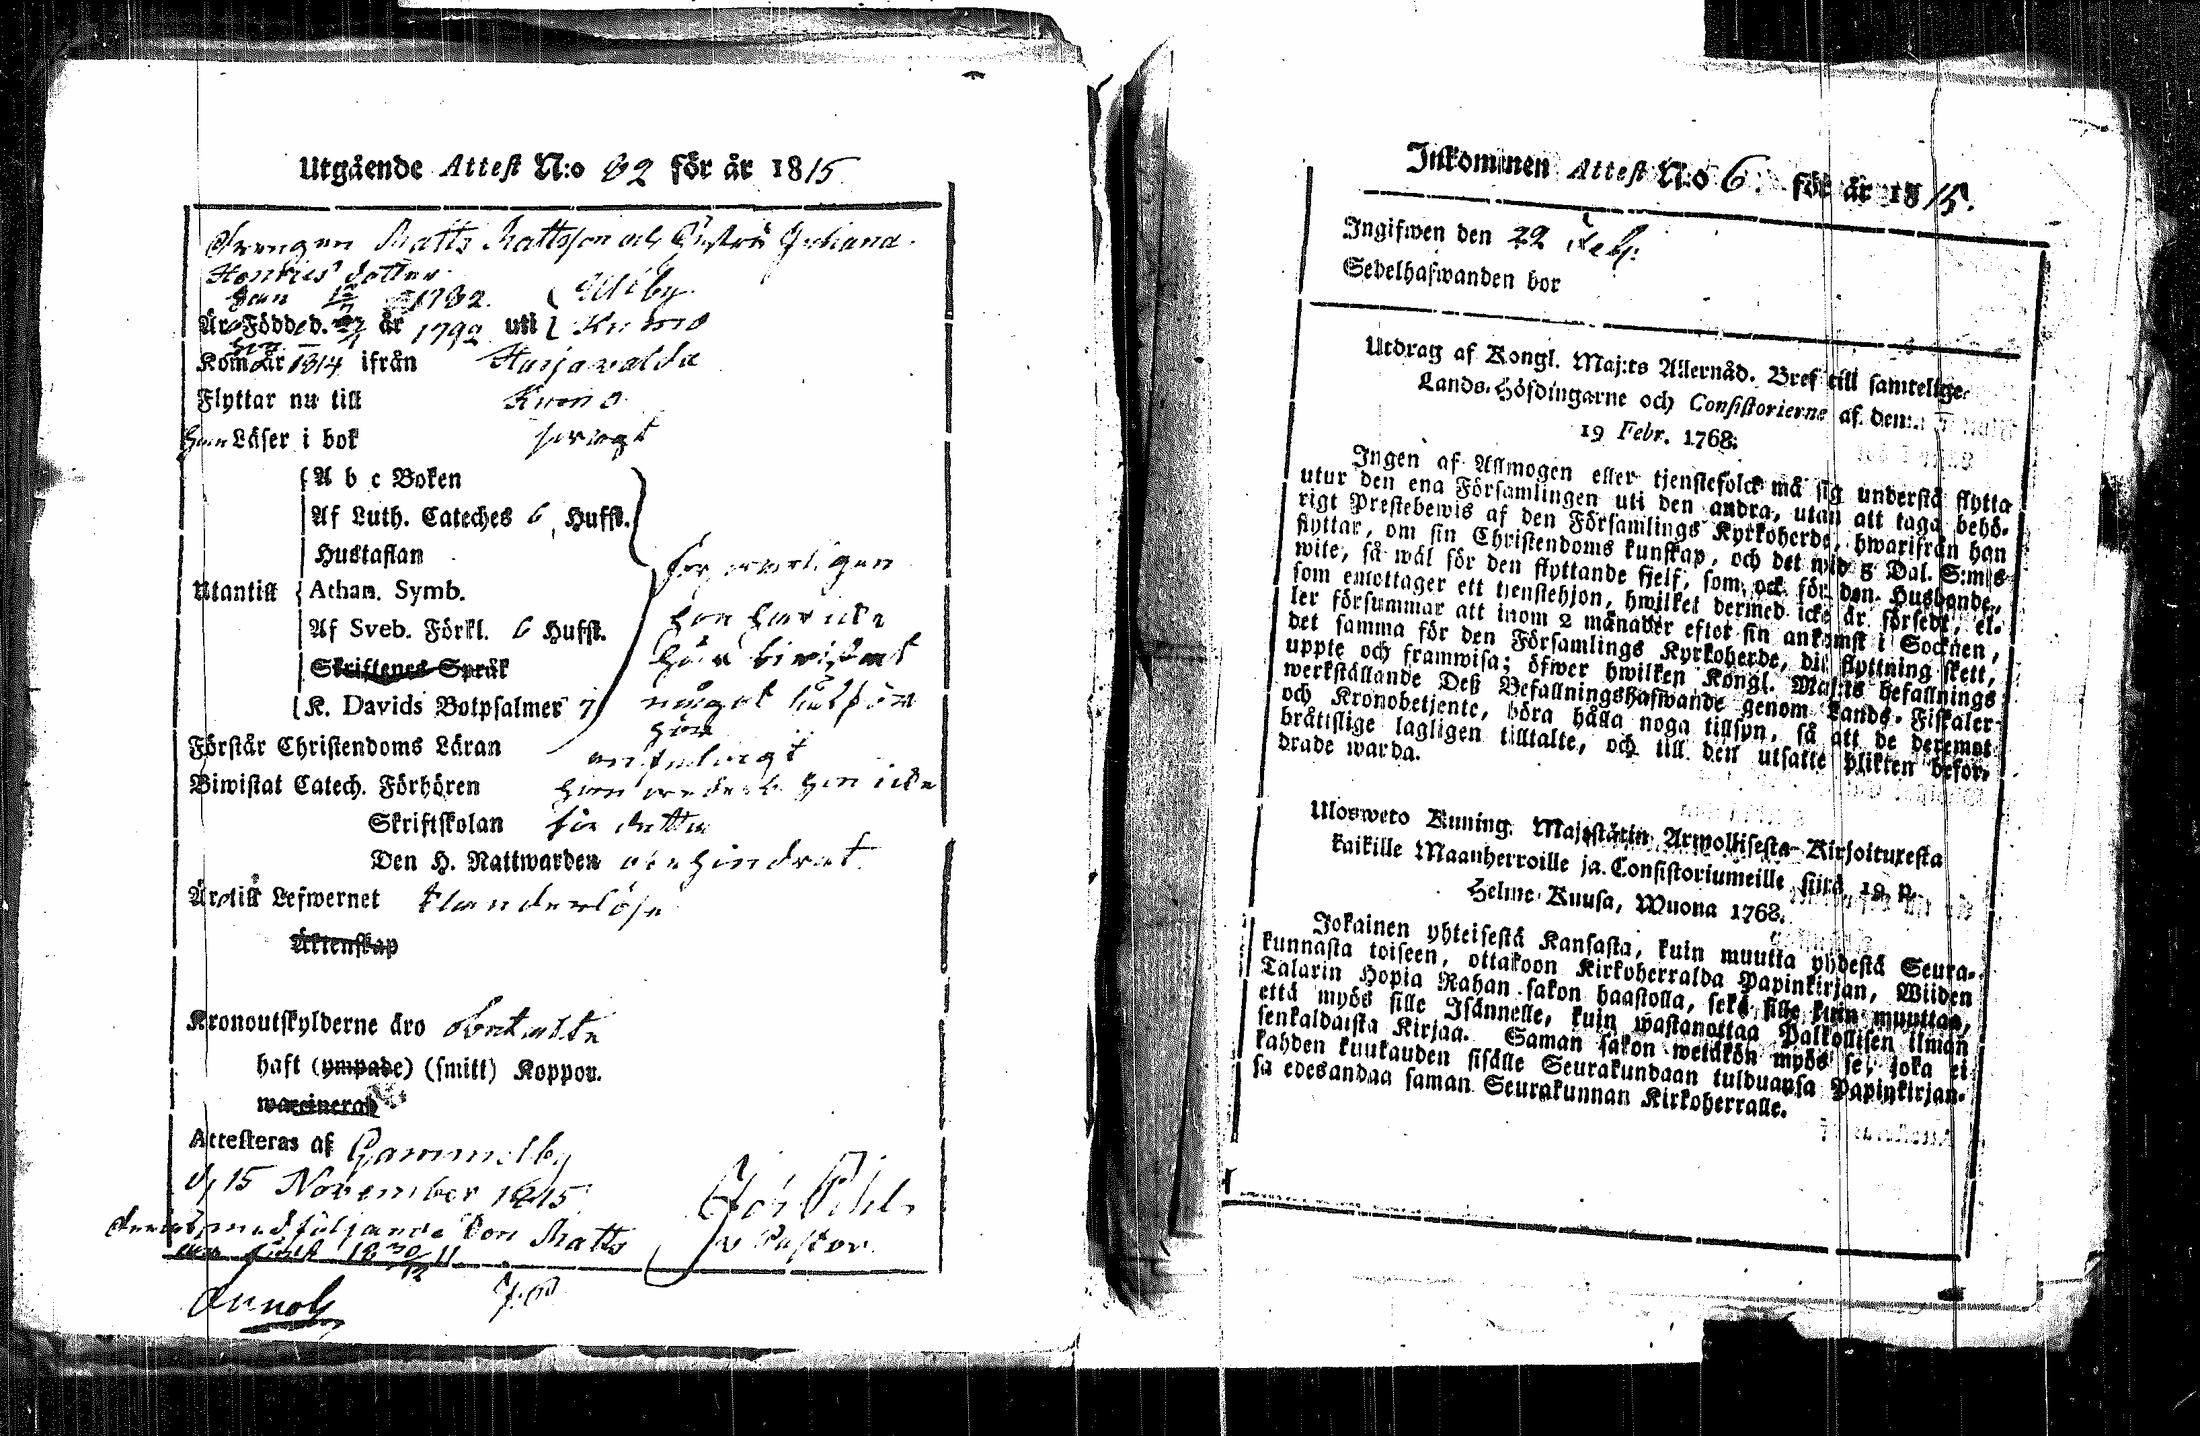 Utgående Attest N:o 82 för år 1815
Drengen Matts Mattsson och Hustru Juliana
Henrics dotter
han 1782. Ulfby
Äro Födde d. år 1792 uti Kumo
Kom år 1814 ifrån Harjavalda
Flyttar nu till Kumo
han Läser i bok
A b c Boken
Af Luth. Cateches 6 Hufst.
Hustaflan
förswarligen
Utantill Athan. Symb.
hon har icke
Af Sveb. Förkl. 6 Hufst.
här biwistat
Skriftenes Språk
K. Davids Botpsalmer 7
något
Förstår Christendoms Läran
Biwistat Catech. Förhören
hon icke
Skriftskolan
Den H. Nattwarden ohindrat
Är till Lefwernet klanderlöse
Äktenskap
Kronoutskylderne äro obetalte
haft (ympade) (smitt) Koppor.
waccinerad
Attesteras af Gammelby
d. 15 November 1815
medföljande Son Matts
Pastor
Inkommen Attest N:o 6 för år 1815.
Ingifwen den 22 Feb.
Sedelhafwanden bor
Utdrag af Kongl. Maj:ts Allernåd. Bref till samtelige
Lands-Höfdingarne och Consistorierne af den
19 Febr. 1768.
Ingen af Allmogen eller tjenstefolck må sig understå flytta
utur den ena Församlingen uti den andra, utan att taga behö-
rigt Prestebewis af den Församlings Kyrkoherde, hwarifrån han
flyttar, om sin Christendoms kunskap, och det wid 5 Dal. S:m:s
wite, så wäl för den flyttande sjelf, som ock för den Husbonde,
som emottager ett tjenstehjon, hwilket dermed icke är försedt, el-
ler försummar att inom 2 månader efter sin ankomst i Socknen,
det samma för den Församlings Kyrkoherde, dit flyttning skett,
uppte och framwisa; öfwer hwilken Kongl. Maj:ts befallnings
werkställande Deß Befallningshafwande genom Lands-Fiskaler
och Kronobetjente, böra hålla noga tillsyn, så att de deremot
bråttslige lagligen tilltalte, och till den utsatte plikten befor-
drade warda.
Ulosweto Kuning. Majestätin Armollisesta Kirjoituxesta
kaikille Maanherroille ja Consistoriumeille, siitä 19 p.
Helme Kuusa, Wuona 1768.
Jokainen yhteisestä Kansasta, kuin muutta yhdestä Seura-
kunnasta toiseen, ottakoon Kirkoherralda Papinkirjan, Wiiden
Talarin Hopia Rahan sakon haastolla, sekä sille kuin muuttaa,
että myös sille Isännelle, kuin wastanottaa Palkollisen ilman
senkaldaista Kirjaa. Saman sakon wetäkön myös se, joka ei
kahden kuukauden sisälle Seurakundaan tulduansa Papinkirjan-
sa edesandaa saman Seurakunnan Kirkoherralle.